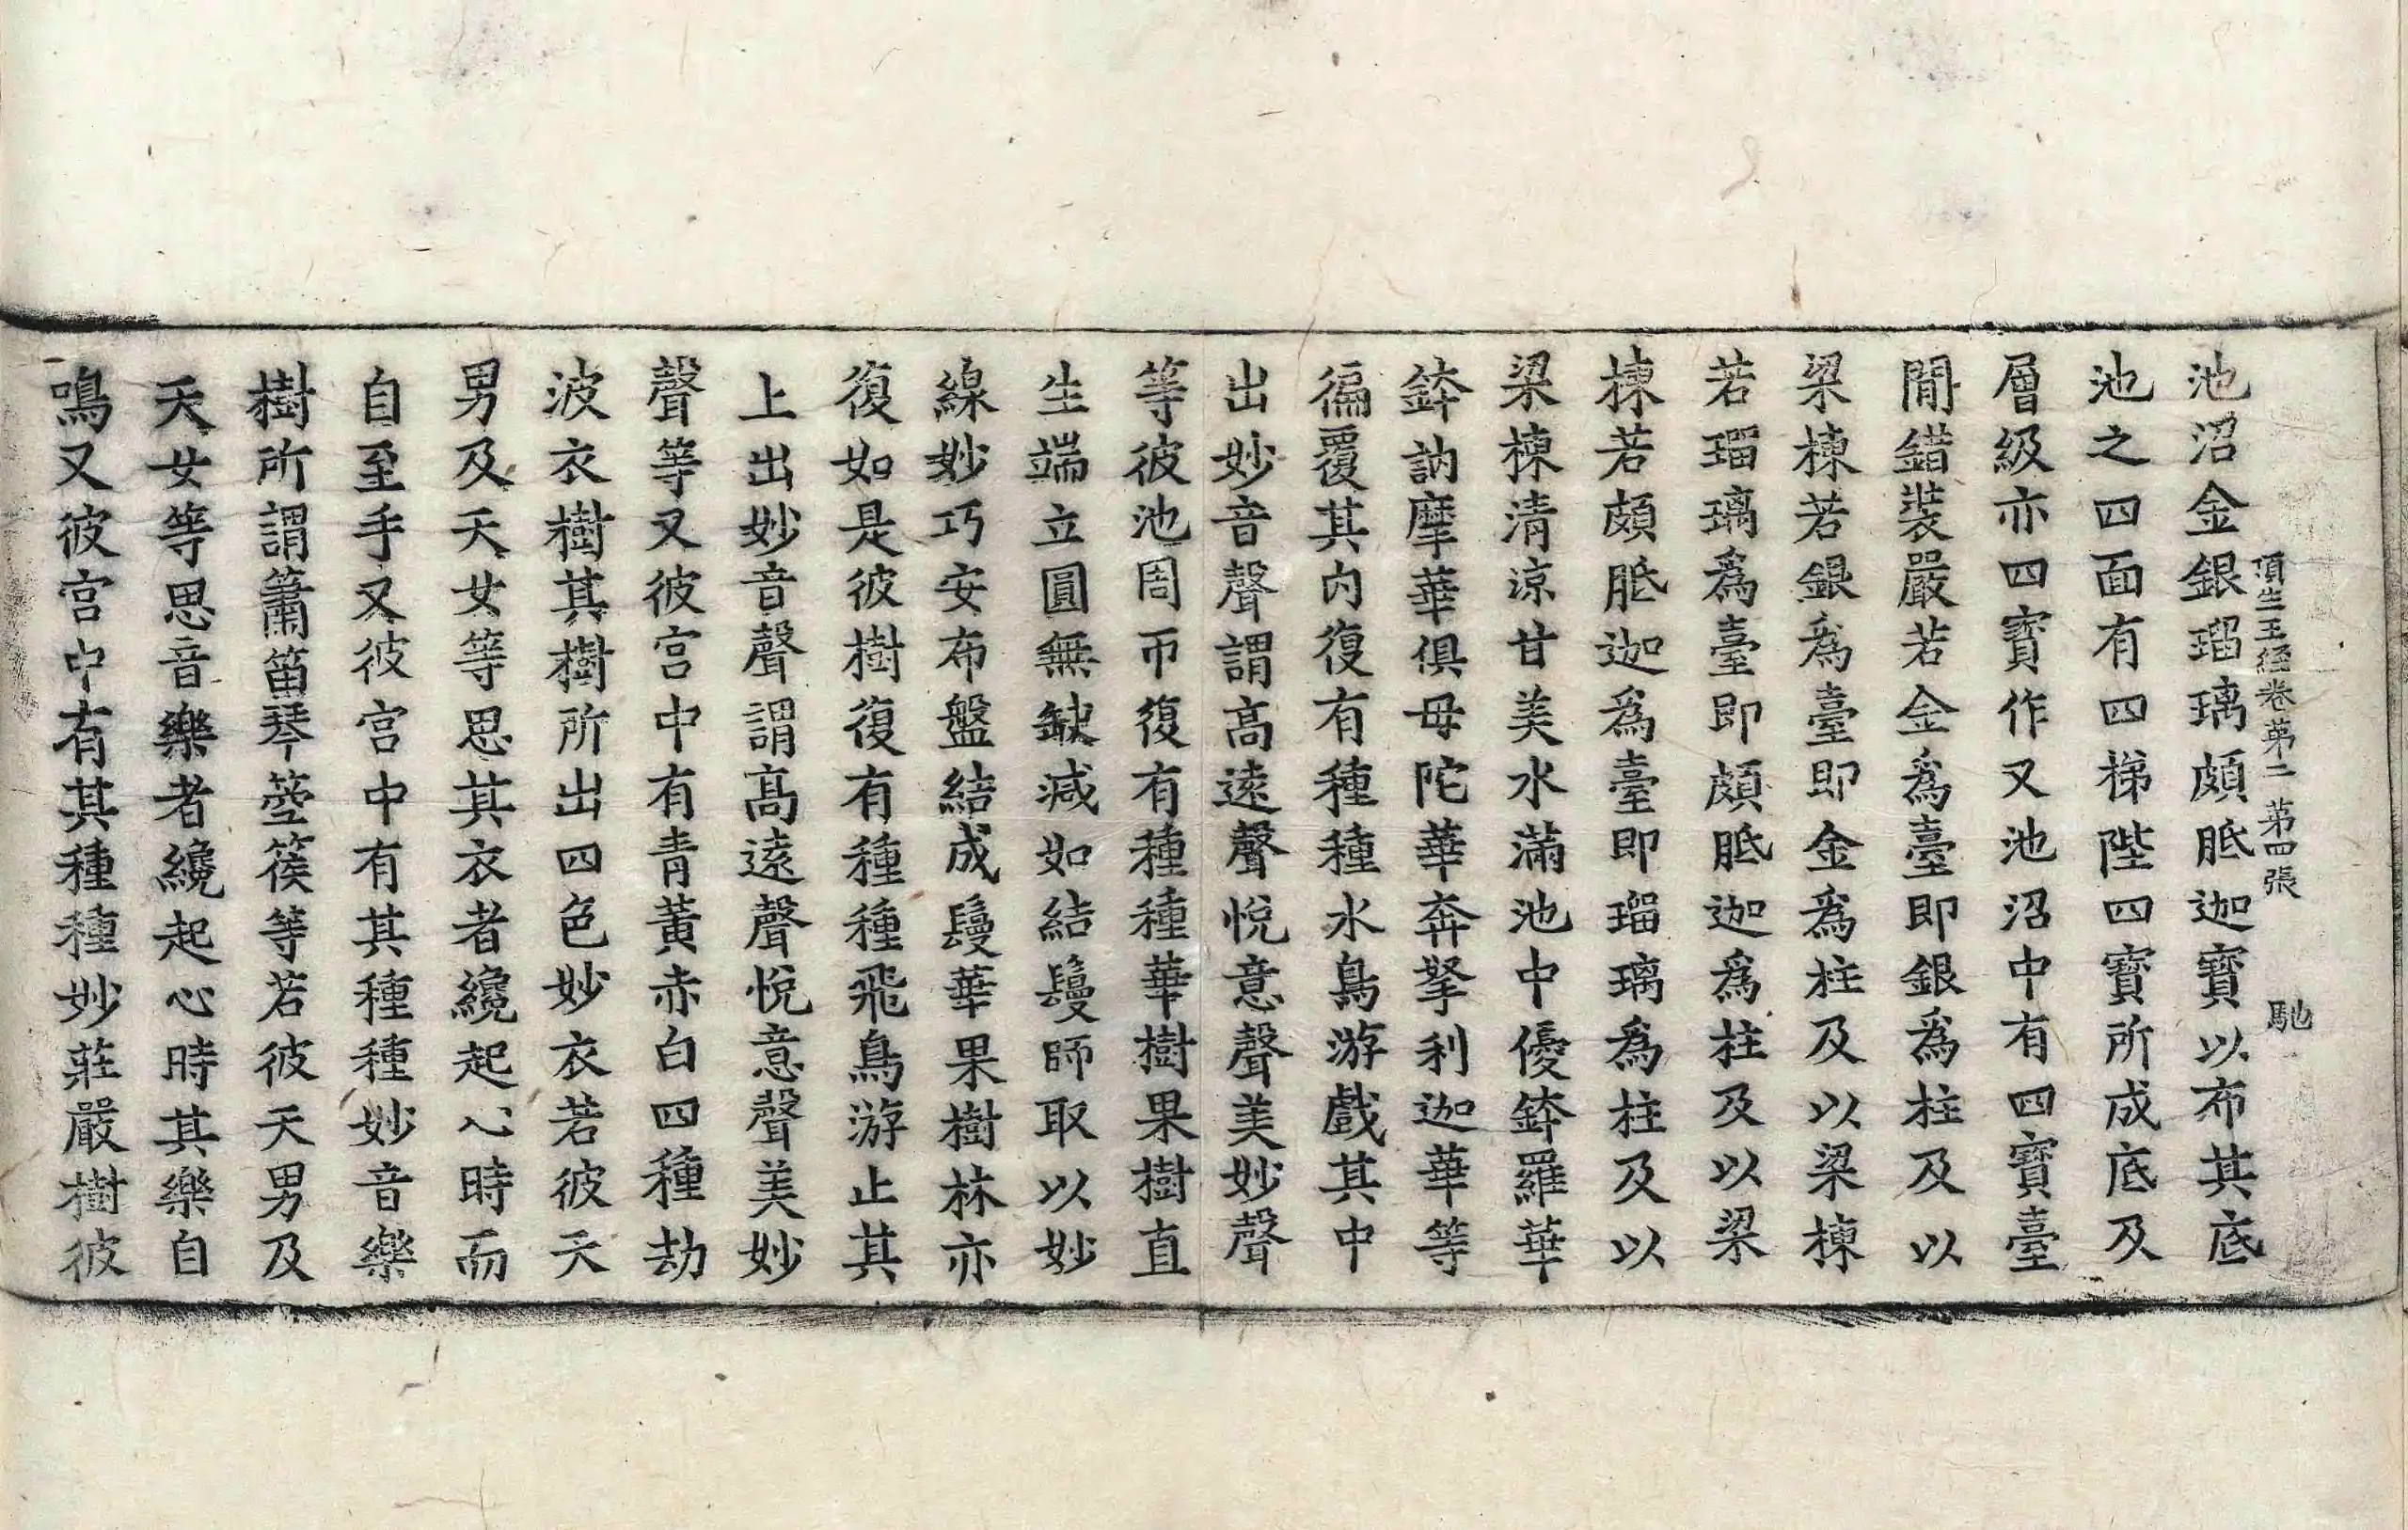 頂生王經卷苐二 苐四張 馳
池沼金銀瑠璃頗胝迦寶以布其底
池之四面有四梯陛四寳所成底及
層級亦四寳作又池沼中有四寳臺
閒錯裝嚴若金爲臺即銀爲柱及以
梁棟若銀爲臺即金爲柱及以梁棟
若瑠璃爲臺即頗胝迦爲柱及以梁
棟若頗胝迦爲臺即瑠璃爲柱及以
梁棟清涼甘美水滿池中優鉢羅華
鉢訥摩華俱毋陀華奔拏利迦華等
徧覆其内復有種種水鳥游戲其中
出妙音聲謂高遠聲悅意聲美妙聲
等彼池周帀復有種種華樹果樹直
生端立圓無缺減如結鬘師取以妙
線妙巧安布盤結成鬘華果樹林亦
復如是彼樹復有種種飛鳥游止其
上出妙音聲謂高遠聲悅意聲美妙
聲等又彼宮中有青黃赤白四種劫
波衣樹其樹所出四色妙衣若彼天
男及天女等思其衣者纔起心時而
自至手又彼宮中有其種種妙音樂
樹所謂簫笛琴箜篌等若彼天男及
天女等思音樂者纔起心時其樂自
鳴又彼宮中有其種種妙莊嚴樹彼